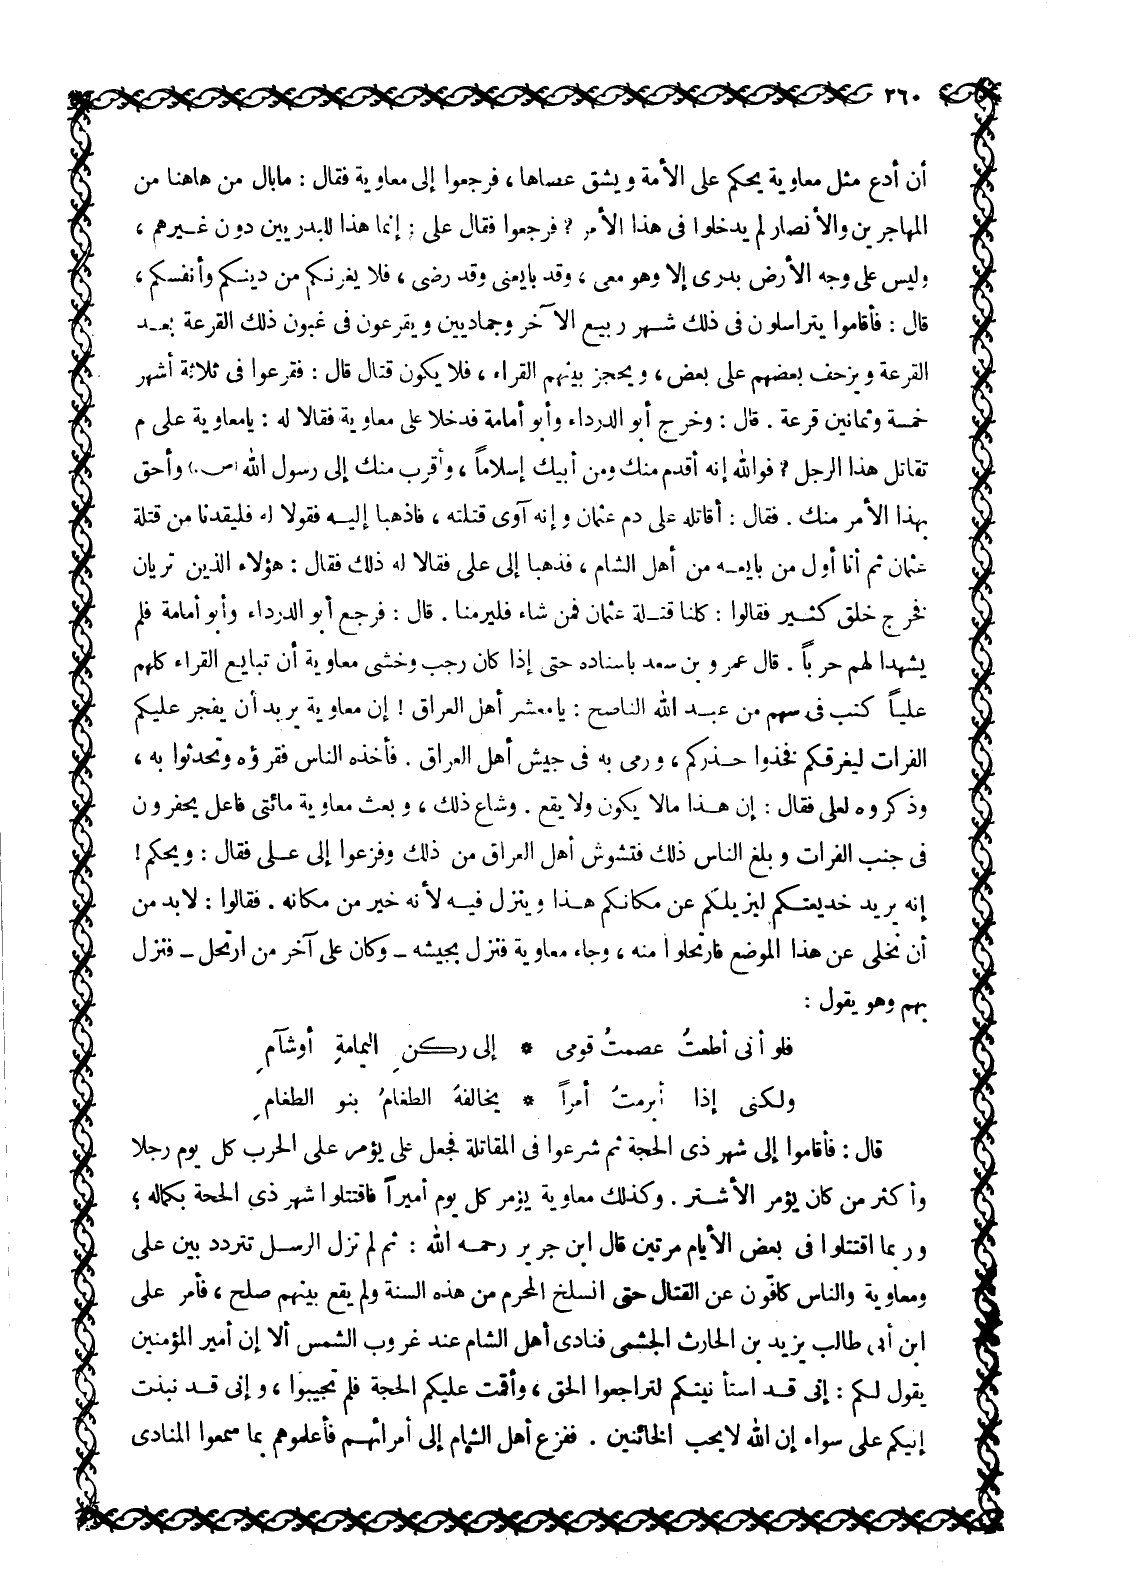 ٢٦٠
أن أدع مثل معاوية يحكم على الأمة ويشق عصاها ، فرجعوا إلى معاوية فقال : مابال من هاهنا من
المهاجرين والأنصار لم يدخلوا فى هذا الأمر ؟ فرجعوا فقال على : إنما هذا للبدريين دون غيرهم ،
وليس على وجه الأرض بدرى إلا وهو معى ، وقد بايعنى وقد رضى ، فلا يغرنكم من دينكم وأنفسكم ،
قال : فأقاموا يتراسلون فى ذلك شهر ربيع الآخر وجماديين ويقرعون فى غبون ذلك القرعة بعد
القرعة ويزحف بعضهم على بعض ، ويحجز بينهم القراء ، فلا يكون قتال قال : فقرعوا فى ثلاثة أشهر
خمسة وثمانين قرعة . قال : وخرج أبو الدرداء وأبو أمامة فدخلا على معاوية فقالا له : يامعاوية على م
تقاتل هذا الرجل ؟ فوالله إنه أقدم منك ومن أبيك إسلاماً ، وأقرب منك إلى رسول الله (ص.) وأحق
بهذا الأمر منك . فقال : أقاتله على دم عثمان وإنه آوى قتلته ، فاذهبا إليه فقولا له فليقدنا من قتلة
عثمان ثم أنا أول من بايعه من أهل الشام ، فذهبا إلى على فقالا له ذلك فقال : هؤلاء الذين تريان
فخرج خلق كثير فقالوا : كلنا قتلة عثمان فمن شاء فليرمنا . قال : فرجع أبو الدرداء وأبو أمامة فلم
يشهدا لهم حرباً . قال عمرو بن سعد باسناده حتى إذا كان رجب وخشى معاوية أن تبايع القراء كلهم
علياً كتب فى سهم من عبد الله الناصح : يامعشر أهل العراق ! إن معاوية يريد أن يفجر عليكم
الفرات ليغرقكم فخذوا حذركم ، ورمى به فى جيش أهل العراق . فأخذه الناس فقرؤه وتحدثوا به ،
وذكروه لعلى فقال : إن هذا مالا يكون ولا يقع . وشاع ذلك ، وبعث معاوية مائتى فاعل يحفرون
فى جنب الفرات وبلغ الناس ذلك فتشوش أهل العراق من ذلك وفزعوا إلى على فقال : ويحكم !
إنه يريد خديعتكم ليزيلكم عن مكانكم هذا وينزل فيه لأنه خير من مكانه . فقالوا : لابد من
أن نخلى عن هذا الموضع فارتحلوا منه ، وجاء معاوية فنزل بجيشه ــ وكان على آخر من ارتحل ــ فنزل
بهم وهو يقول :
فلو أنى أطعتُ عصمتُ قومى * إلى ركنِ اليمامةِ أوشآمِ
ولكنى إذا أبرمتُ أمراً * يخالفهُ الطغامُ بنو الطغامِ
قال : فأقاموا إلى شهر ذى الحجة ثم شرعوا فى المقاتلة فجعل على يؤمر على الحرب كل يوم رجلا
وأكثر من كان يؤمر الأشتر . وكذلك معاوية يؤمر كل يوم أميراً فاقتتلوا شهر ذى الحجة بكماله ؛
وربما اقتتلوا فى بعض الأيام مرتين قال ابن جرير رحمه الله : ثم لم تزل الرسل تتردد بين على
ومعاوية والناس كافّون عن القتال حتى انسلخ المحرم من هذه السنة ولم يقع بينهم صلح ، فأمر على
ابن أبى طالب يزيد بن الحارث الجشمى فنادى أهل الشام عند غروب الشمس ألا إن أمير المؤمنين
يقول لكم : إنى قد استأنيتكم لتراجعوا الحق ، وأقمت عليكم الحجة فلم تجيبوا ، وإنى قد نبذت
إليكم على سواء إن الله لايحب الخائنين . ففزع أهل الشام إلى أمرائهم فأعلموهم بما سمعوا المنادى